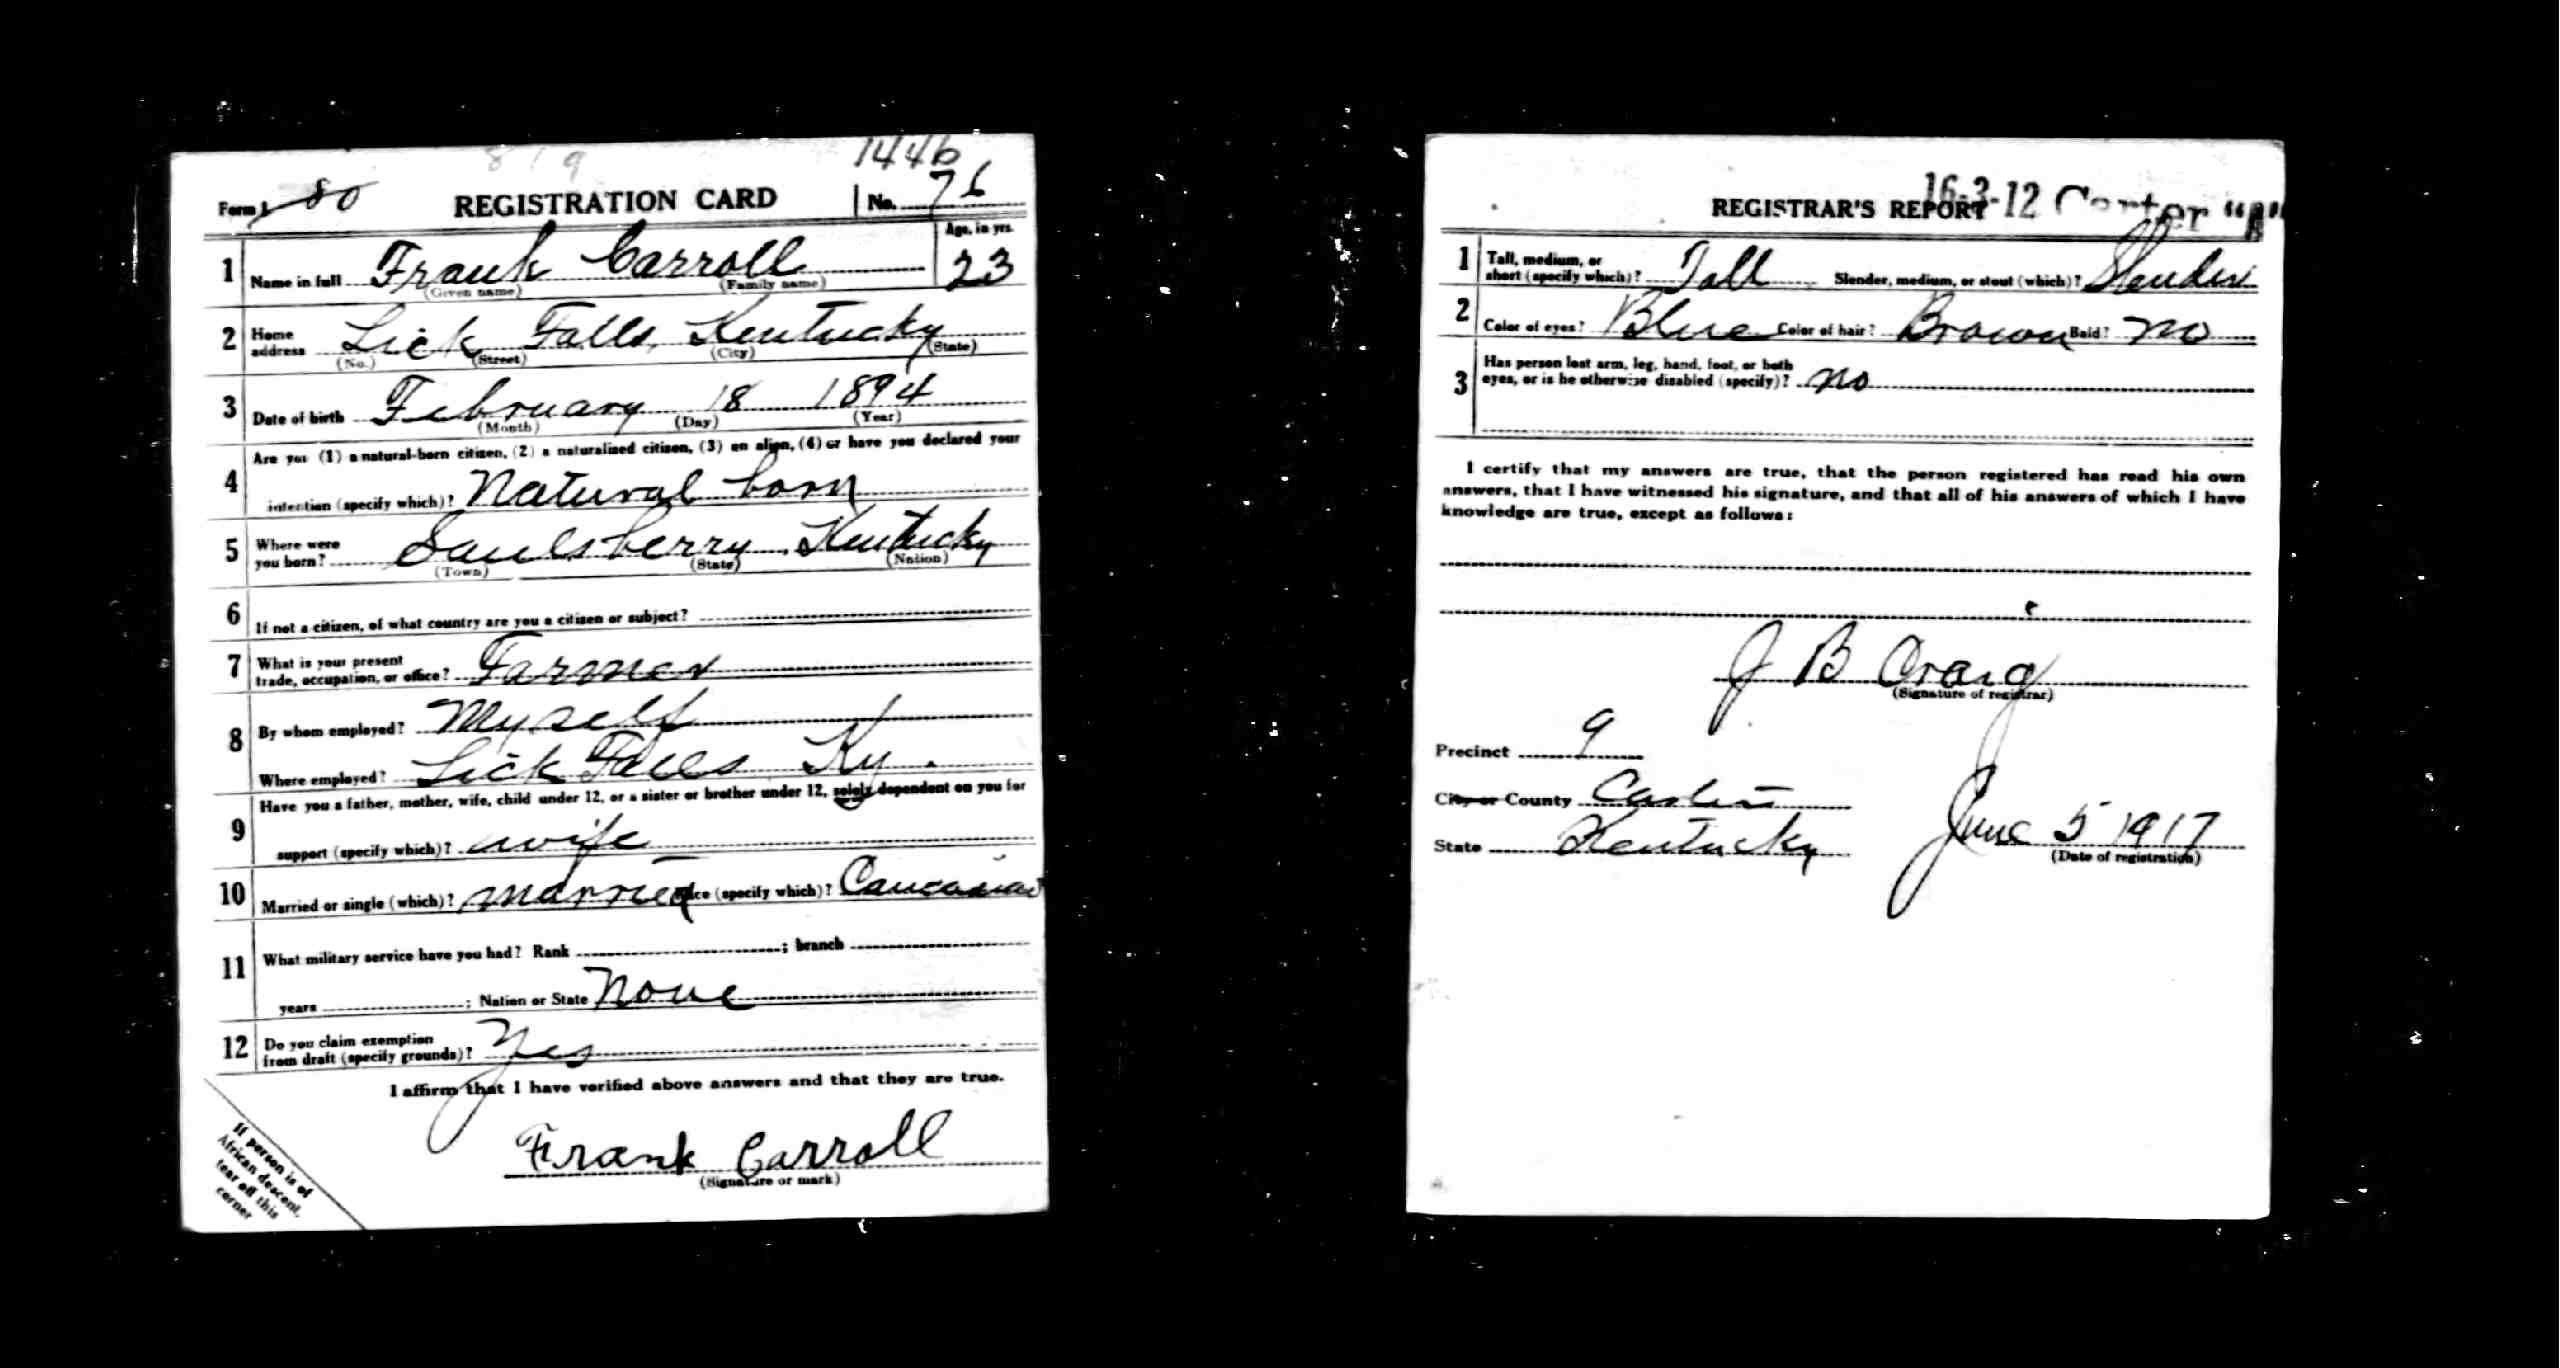 819
1446
Form 1 80 REGISTRATION CARD No. 76
1 Name in full Frank Carroll Age, in yrs. 23
(Given name) (Family name)
2 Home address Lick Falls, Kentucky
(No.) (Street) (City) (State)
3 Date of birth February 18 1894
(Month) (Day) (Year)
4 Are you (1) a natural-born citizen, (2) a naturalized citizen, (3) an alien, (4) or have you declared your
intention (specify which)? Natural born
5 Where were you born? Saulsberry Kentucky
(Town) (State) (Nation)
6 If not a citizen, of what country are you a citizen or subject?
7 What is your present trade, occupation, or office? Farmer
8 By whom employed? Myself
Where employed? Lick Falls Ky.
9 Have you a father, mother, wife, child under 12, or a sister or brother under 12, solely dependent on you for
support (specify which)? wife
10 Married or single (which)? married Race (specify which)? Caucasian
11 What military service have you had? Rank ; branch
years ; Nation or State None
12 Do you claim exemption from draft (specify grounds)? Yes
I affirm that I have verified above answers and that they are true.
Frank Carroll
(Signature or mark)
If person is of
African descent,
tear off this
corner
16-3-12 Carter "A"
REGISTRAR'S REPORT
1 Tall, medium, or short (specify which)? Tall Slender, medium, or stout (which)? Slender
2 Color of eyes? Blue Color of hair? Brown Bald? no
3 Has person lost arm, leg, hand, foot, or both
eyes, or is he otherwise disabled (specify)? no
I certify that my answers are true, that the person registered has read his own
answers, that I have witnessed his signature, and that all of his answers of which I have
knowledge are true, except as follows:
J B Craig
(Signature of registrar)
Precinct 9
City or County Carter
State Kentucky June 5 1917
(Date of registration)